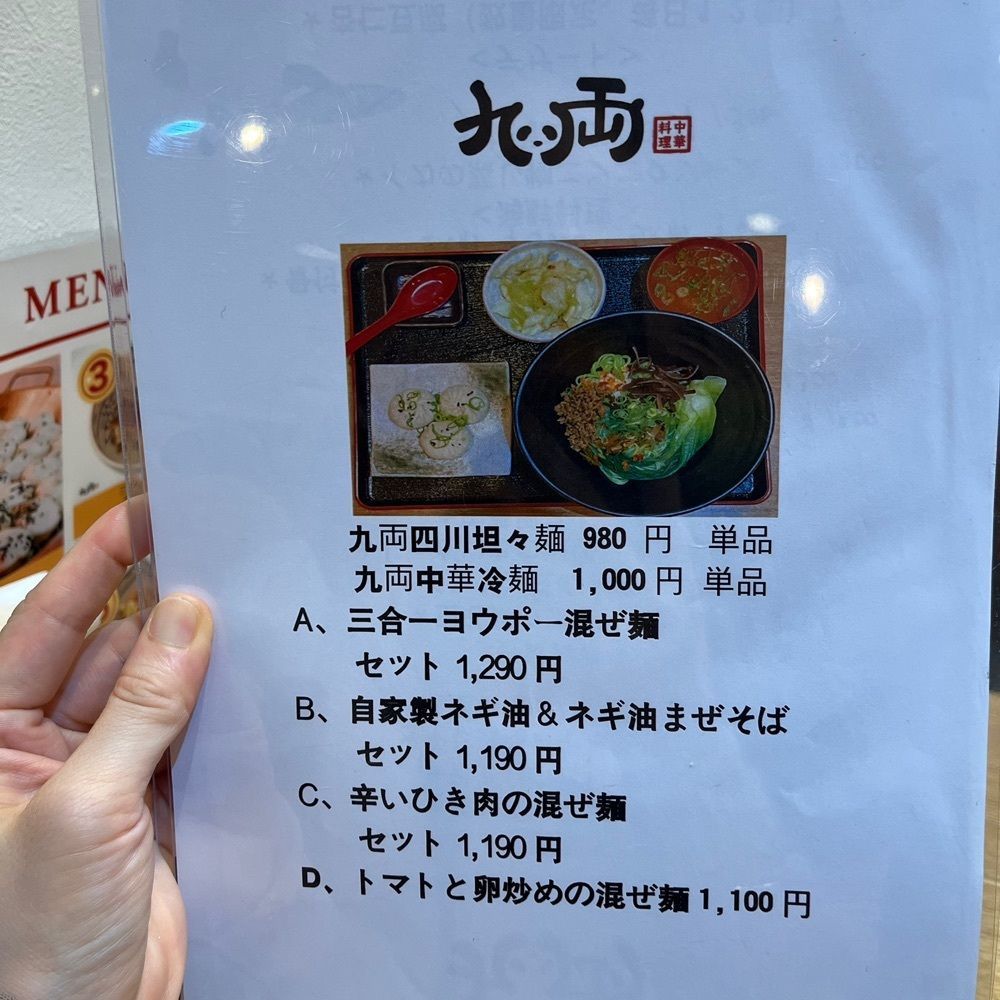 九両 中華料理
MEN
3
九両四川坦々麺 980 円 単品
九両中華冷麺 1,000 円 単品
A、三合一ヨウポー混ぜ麺
セット 1,290 円
B、自家製ネギ油＆ネギ油まぜそば
セット 1,190 円
C、辛いひき肉の混ぜ麺
セット 1,190 円
D、トマトと卵炒めの混ぜ麺 1,100 円